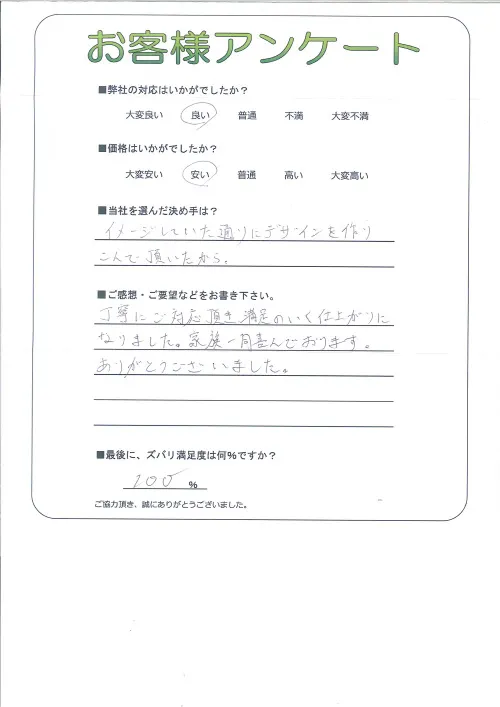 お客様アンケート
■弊社の対応はいかがでしたか？
大変良い 良い 普通 不満 大変不満
■価格はいかがでしたか？
大変安い 安い 普通 高い 大変高い
■当社を選んだ決め手は？
イメージしていた通りにデザインを作り
こんで頂いたから。
■ご感想・ご要望などをお書き下さい。
丁寧にご対応頂き満足のいく仕上がりに
なりました。家族一同喜んでおります。
ありがとうございました。
■最後に、ズバリ満足度は何％ですか？
100 %
ご協力頂き、誠にありがとうございました。